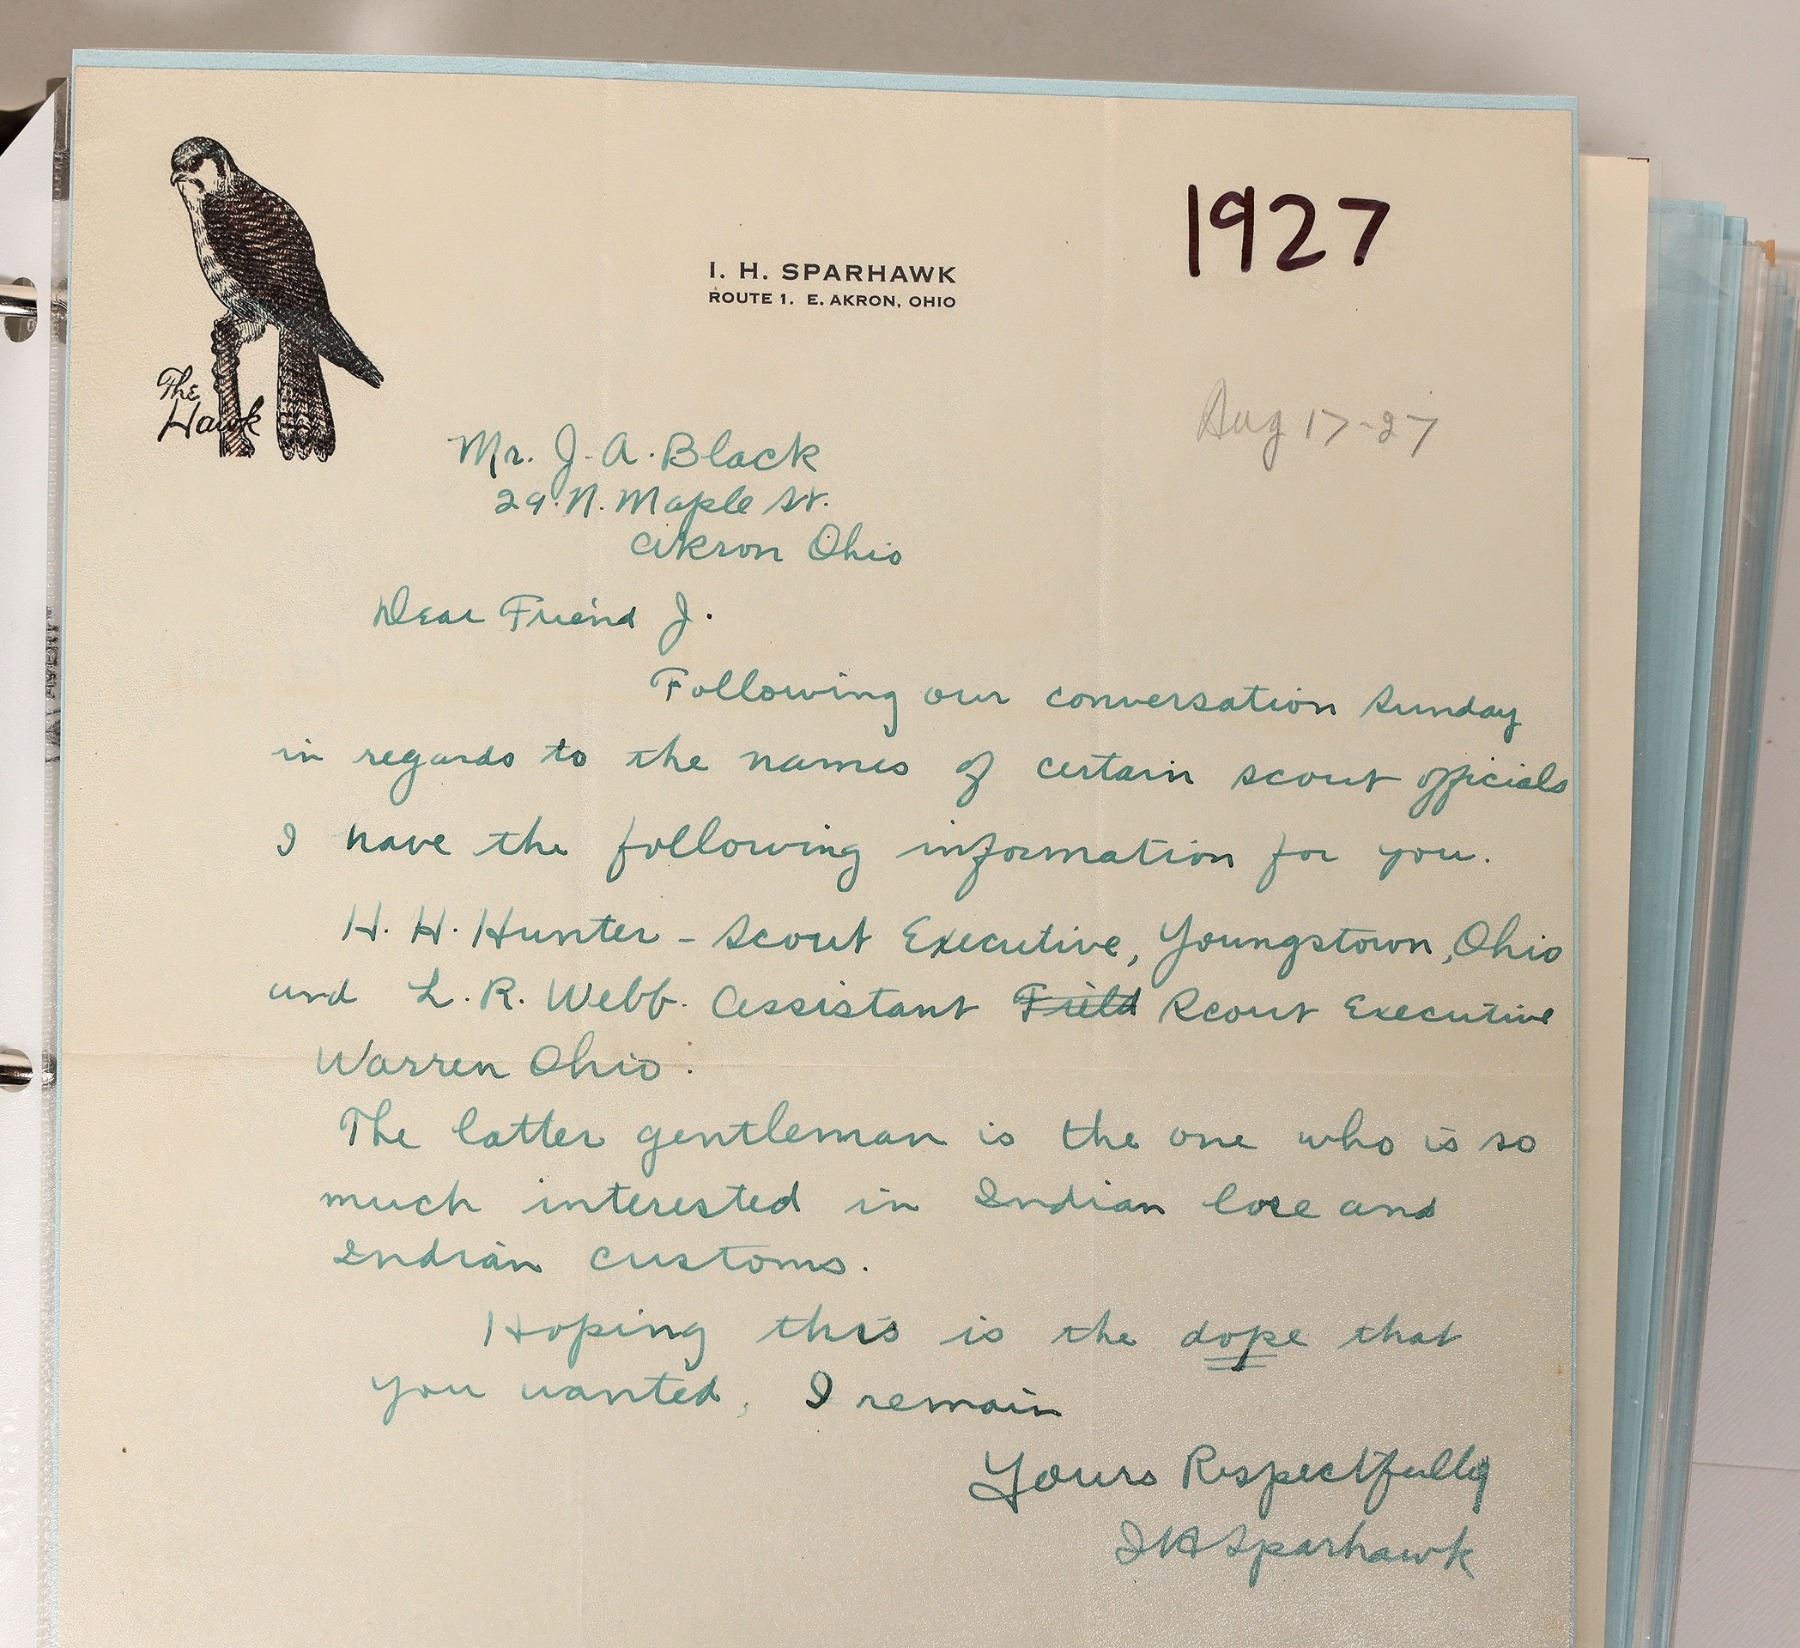 1927
I. H. SPARHAWK
ROUTE 1. E. AKRON, OHIO
The
Hawk
Aug 17-27
Mr. J. A. Black
29. N. Maple St.
Akron Ohio
Dear Friend J.
Following our conversation Sunday
in regards to the names of certain scout officials
I have the following information for you.
H. H. Hunter - Scout Executive, Youngstown, Ohio
and L. R. Webb. Assistant Field Scout Executive
Warren Ohio.
The latter gentleman is the one who is so
much interested in Indian lore and
Indian customs.
Hoping this is the dope that
you wanted, I remain
Yours Respectfully
I H Sparhawk